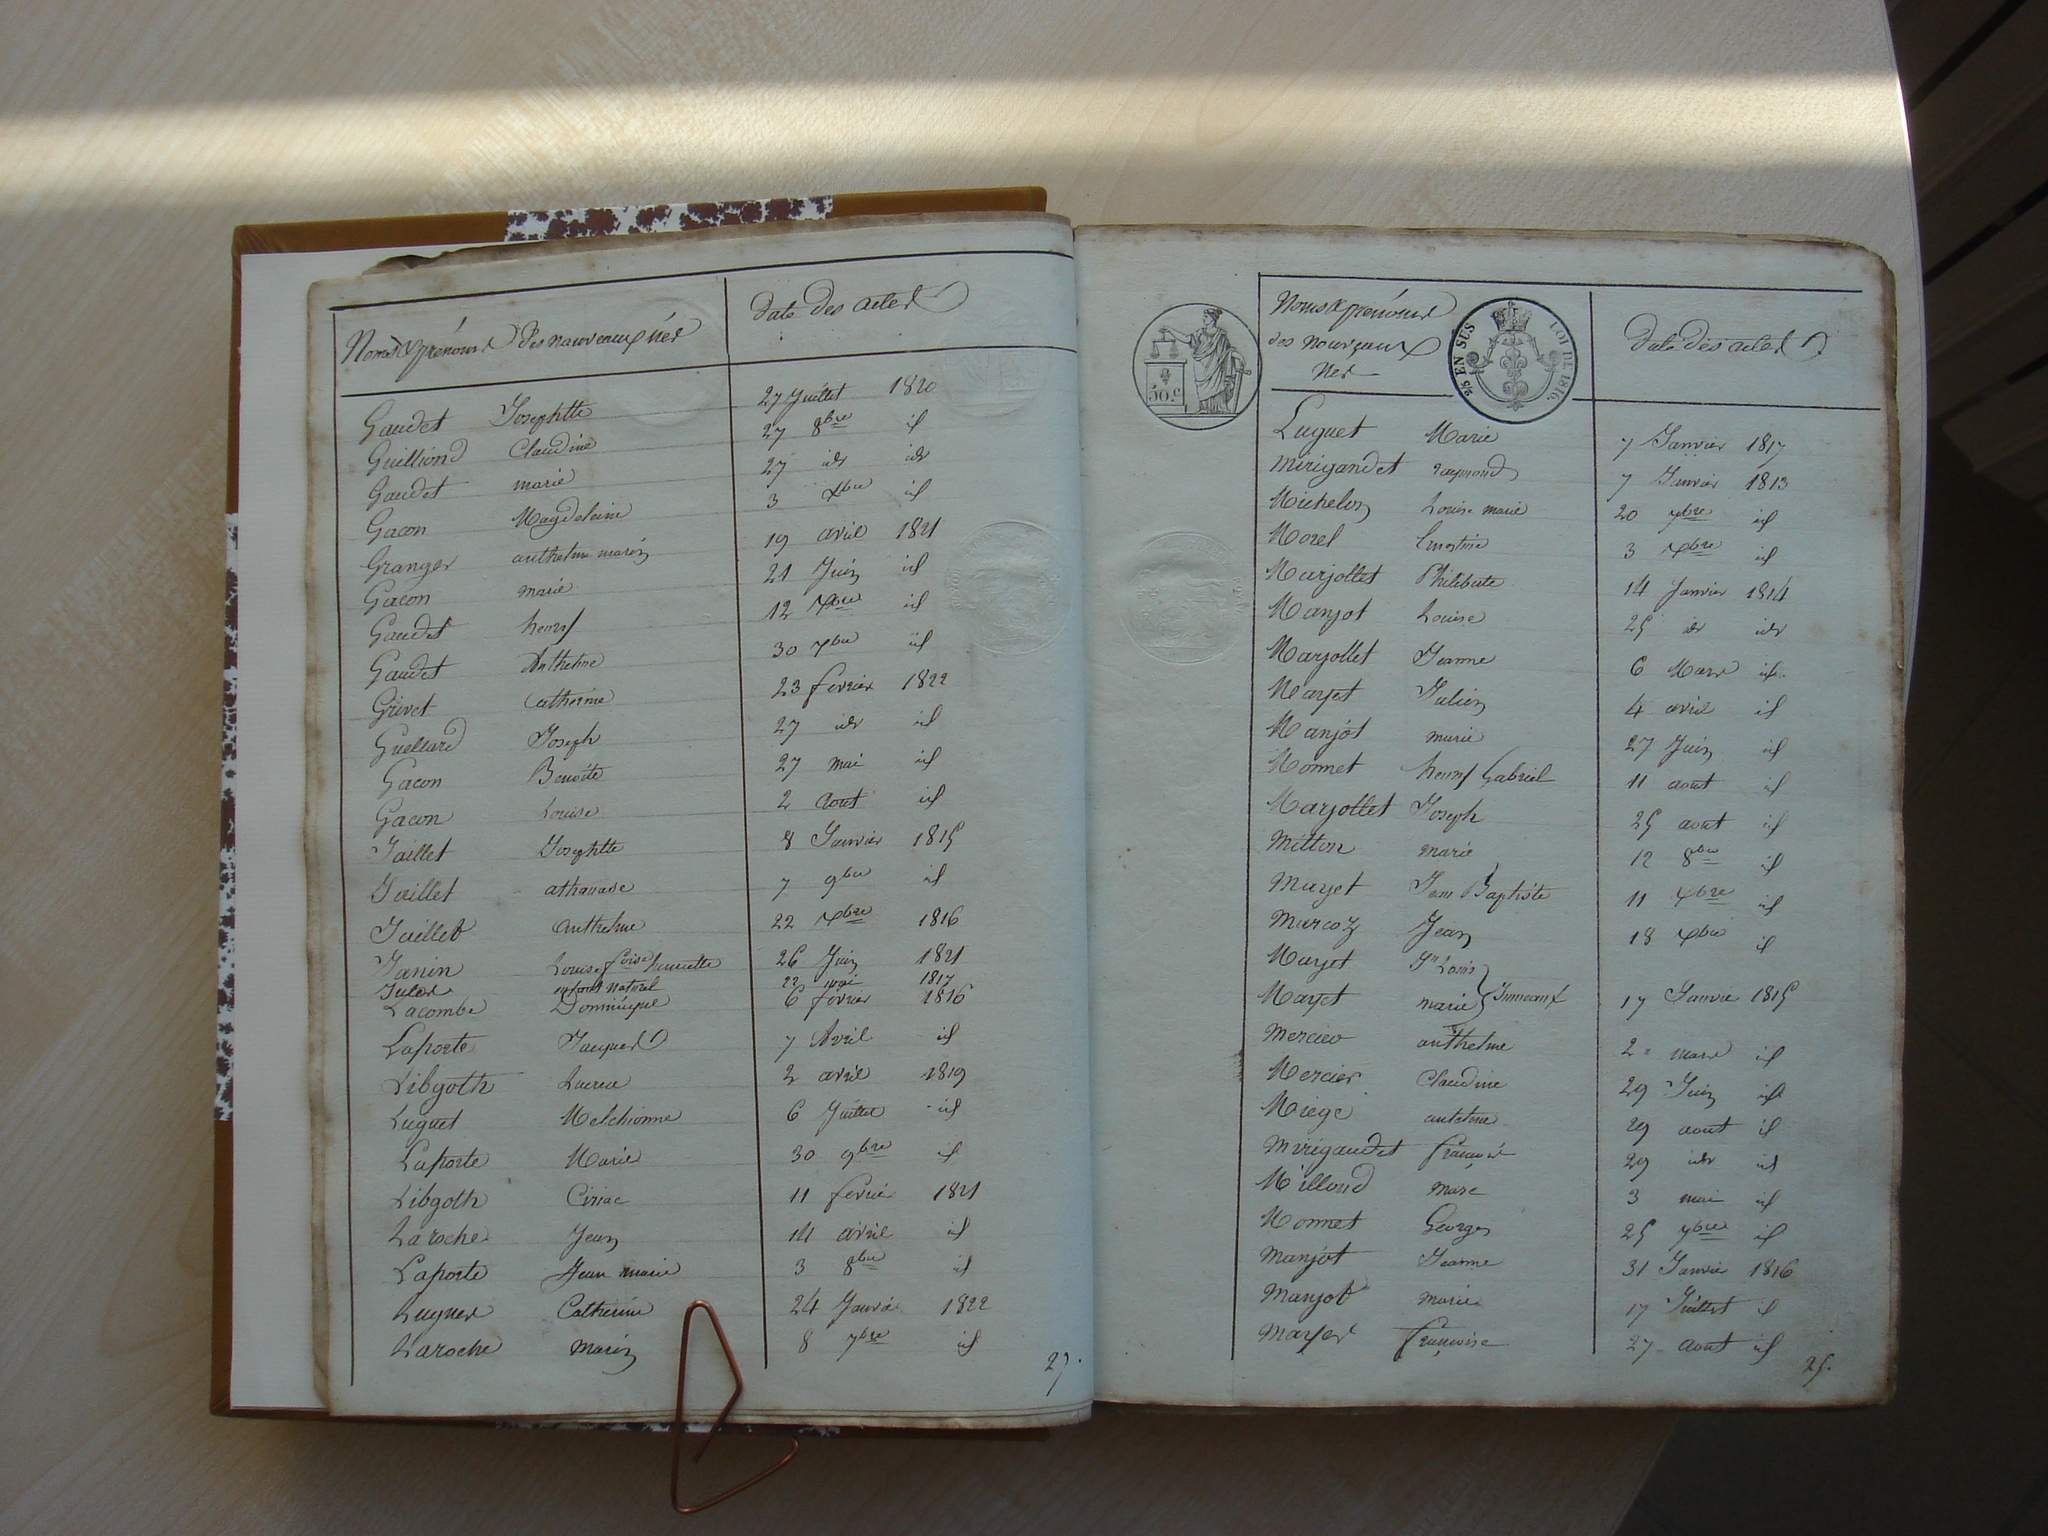 Noms & prénoms des nouveaux nés
Date des actes
Gaudet Josephtte 27 Juillet 1820
Guilliond Claudine 27 8bre id
Gaudet marie 27 idr idr
Gacon Magdeleine 3 Xbre id
Granger anthelme marin 19 avril 1821
Gacon marie 21 Juin id
Gaudet henry 12 Xbre id
Gaudet Anthelme 30 Xbre id
Grivet Catherine 23 fevrier 1822
Guellard Joseph 27 idr id
Gacon Benoite 27 mai id
Gacon Louise 2 Aout id
Jaillet Josephtte 8 Janvier 1815
Jaillet athanase 7 9bre id
Jaillet Anthelme 22 Xbre 1816
Janin Louise foise henriette 26 Juin 1821
Jules enfant naturel 22 mai 1817
Lacombe Dominique 6 fevrier 1816
Laporte Jacques 7 Avril id
Libgoth Lucrece 2 avril 1819
Luguet Melchionne 6 Juillet id
Laporte Marie 30 9bre id
Libgoth Ciriac 11 fevrier 1821
Laroche Jean 14 avril id
Laporte Jean marie 3 8bre id
Luguet Catherine 24 Janvier 1822
Laroche Marin 8 7bre id
27.
50.C
2/5 EN SUS LOI DE 1816.
Noms & prénoms
des nouveaux
Nés
Date des actes
Luguet Marie 7 Janvier 1817
Mirigandet raymond 7 Janvier 1813
Michelon Louise marie 20 7bre id
Morel Ernestine 3 Xbre id
Marjollet Philiberte 14 Janvier 1814
Manjot Louise 25 idr idr
Marjollet Jeanne 6 Mars id
Mayet Julien 4 avril id
Manjot marie 27 Juin id
Monnet henry Gabriel 11 aout id
Marjollet Joseph 25 aout id
Mitton marie 12 8bre id
Mayet Jean Baptiste 11 Xbre id
Marcoz Jean 18 Xbre id
Mayet Jn Louis
Mayet marie Jumeaux 17 Janvier 1815
Mercier anthelme 2 mars id
Mercier Claudine 29 Juin id
Miege antelme 29 aout id
Mirigaudet francois 29 idr id
Milloud marc 3 mai id
Monnet Georges 25 7bre id
Manjot Jeanne 31 Janvier 1816
Manjot marie 17 Juillet id
Mayet françoise 27 aout id
25.